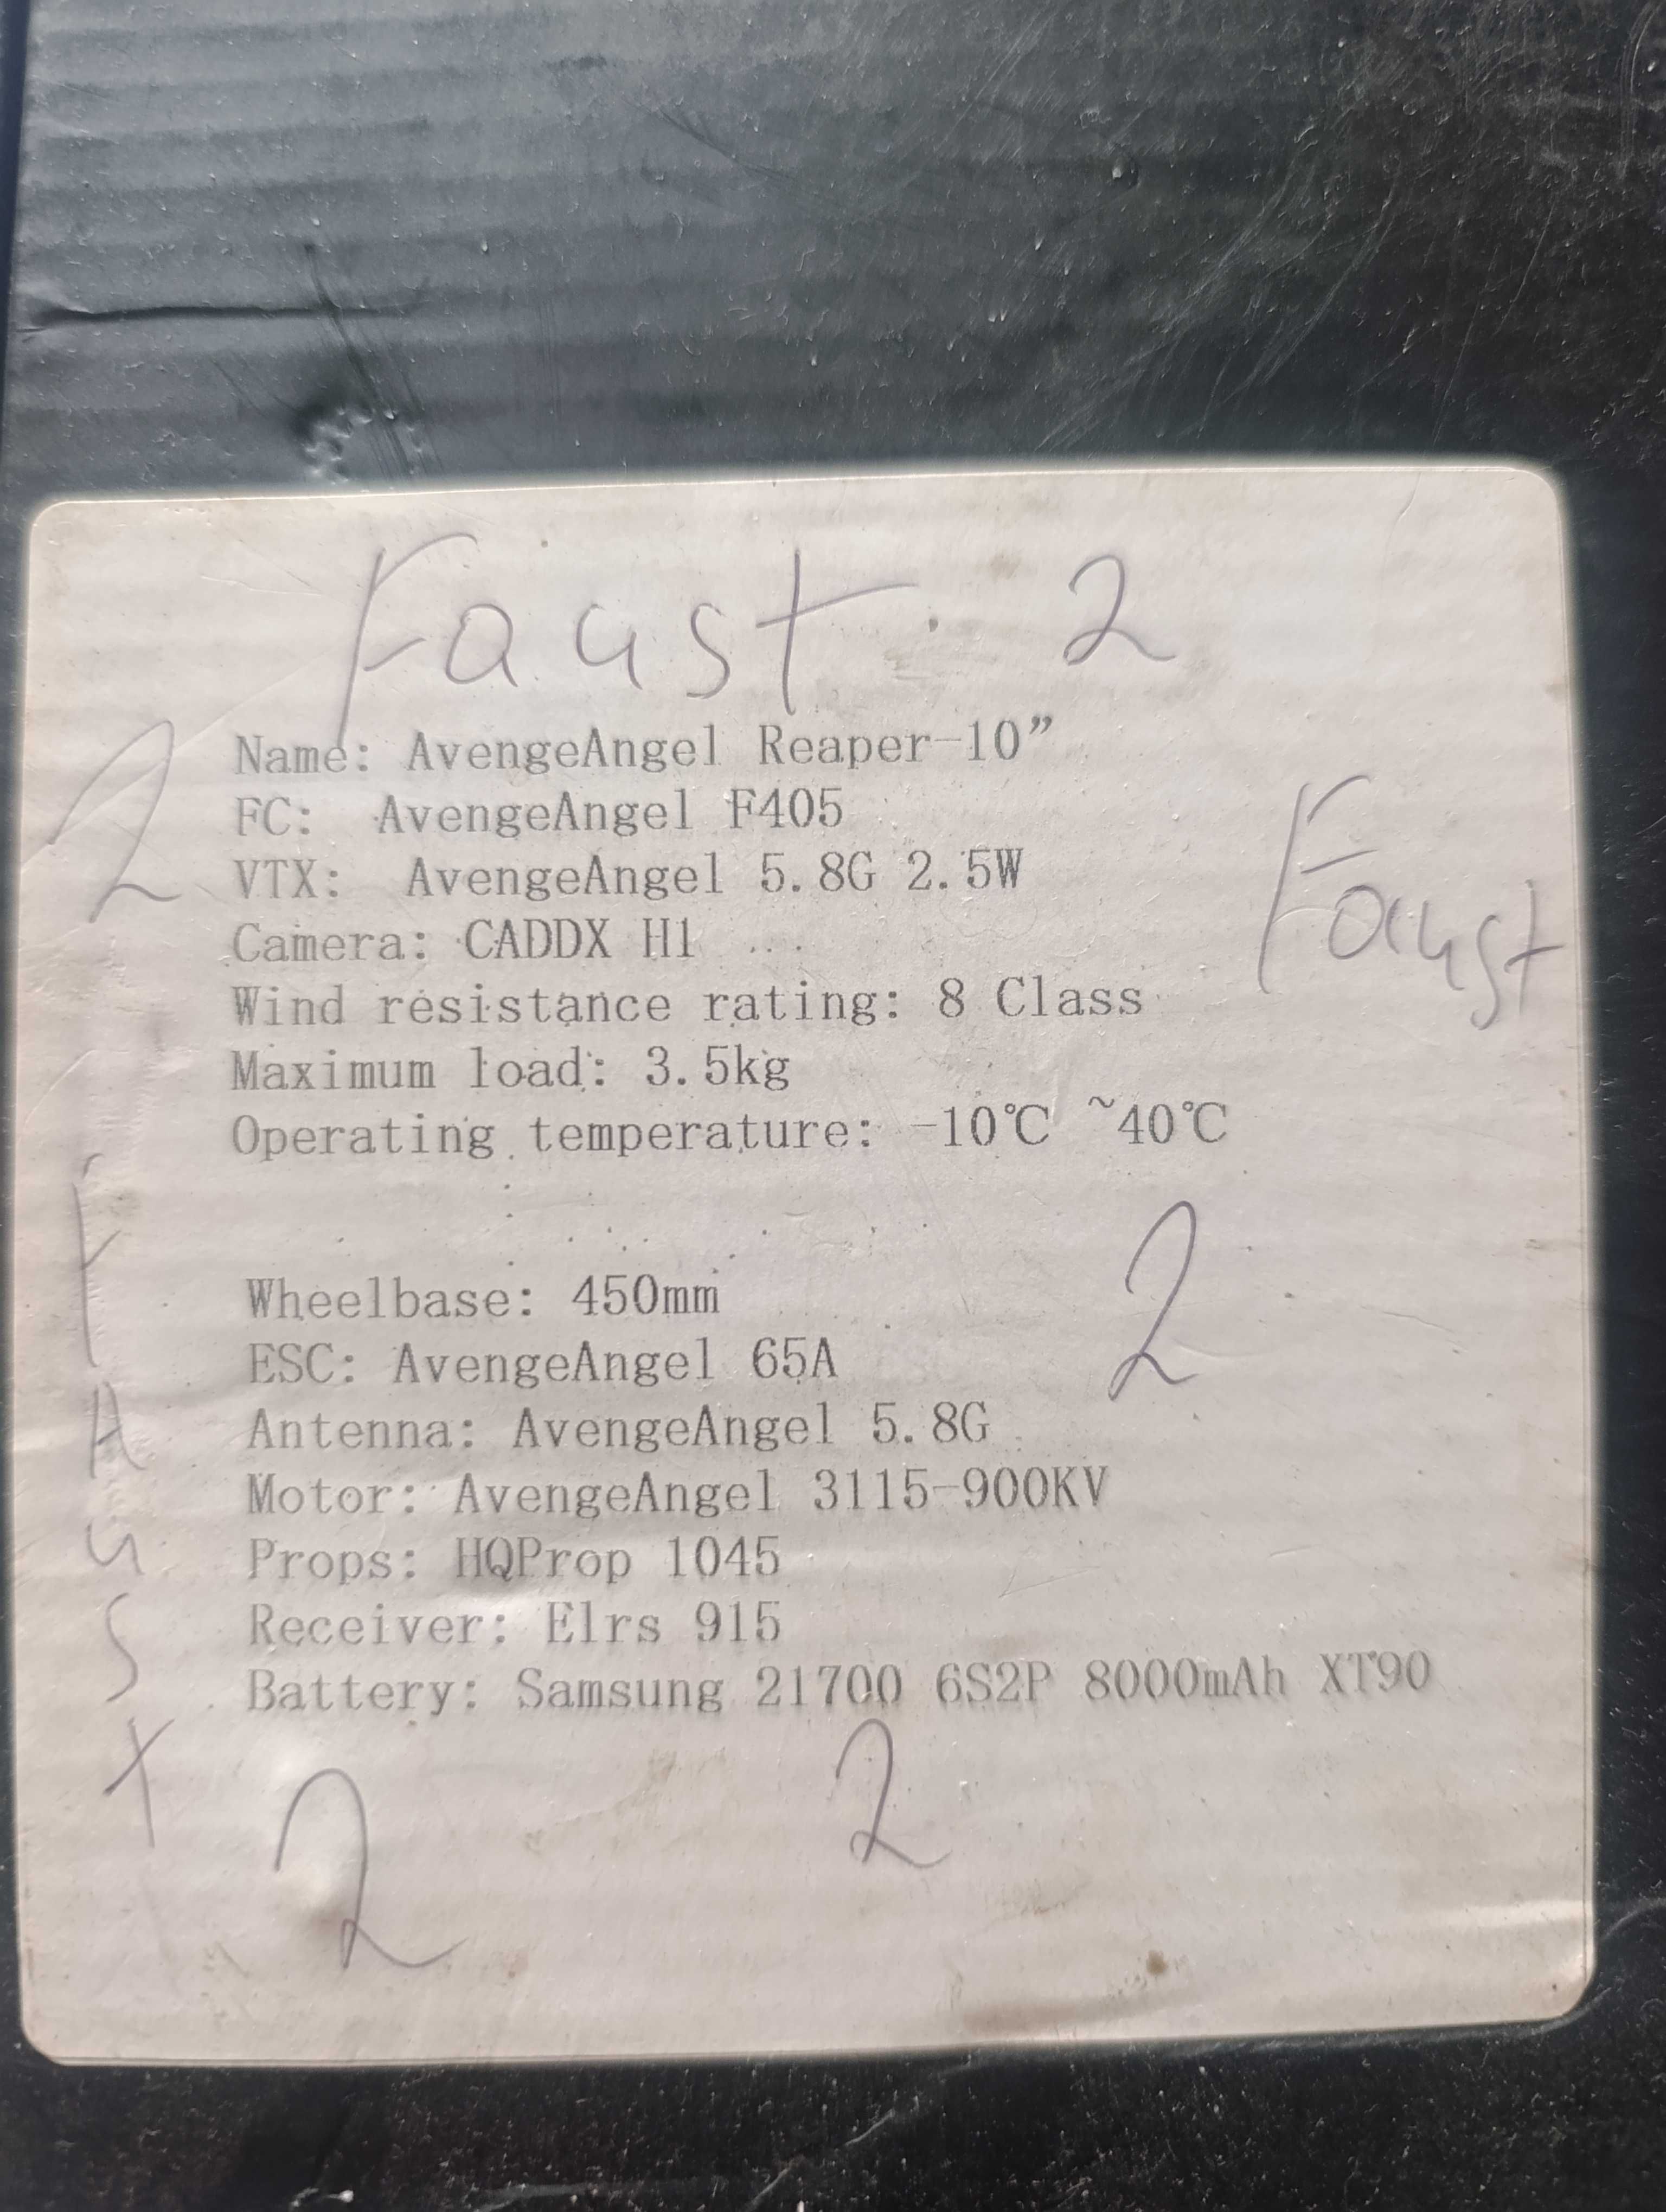 Faust 2
2
Name: AvengeAngel Reaper-10”
FC: AvengeAngel F405
VTX: AvengeAngel 5.8G 2.5W
Camera: CADDX H1
Faust
Wind resistance rating: 8 Class
Maximum load: 3.5kg
Operating temperature: -10℃ ~40℃
2
Wheelbase: 450mm
ESC: AvengeAngel 65A
Antenna: AvengeAngel 5.8G
Motor: AvengeAngel 3115-900KV
Props: HQProp 1045
Receiver: Elrs 915
Battery: Samsung 21700 6S2P 8000mAh XT90
FAust
2
2